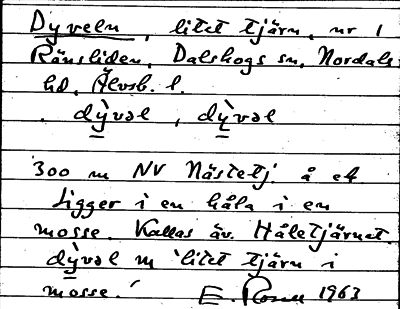 Dyveln, litet tjärn, nr 1
Ränsliden, Dalskogs sn, Nordals
hd, Älvsb. l.
dỳvəl, dỳvəl
300 m NV Nästetj. å ek
Ligger i en håla i en
mosse. Kallas äv. Håletjärnet.
dỳvəl m 'litet tjärn i
mosse.' E. Rosen 1963